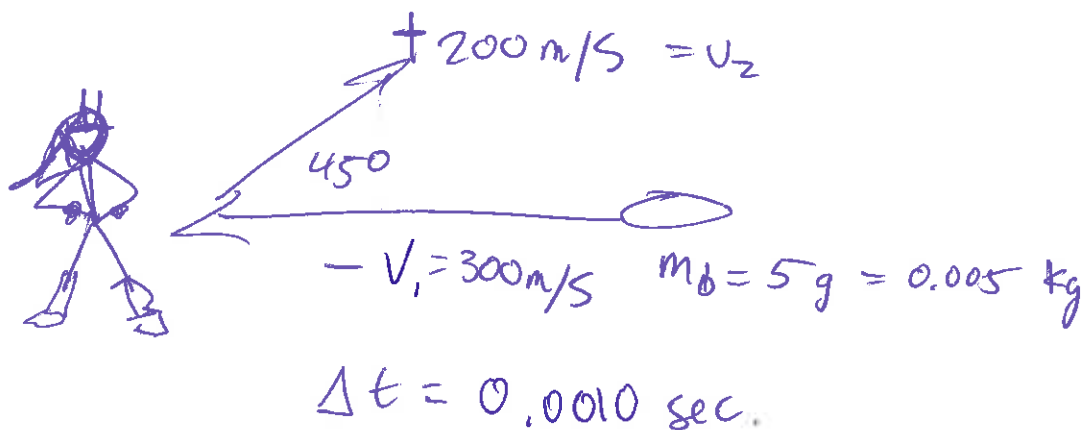 + 200 m/s = v₂
45°
- V₁ = 300 m/s m_b = 5 g = 0.005 kg
Δt = 0.0010 sec.